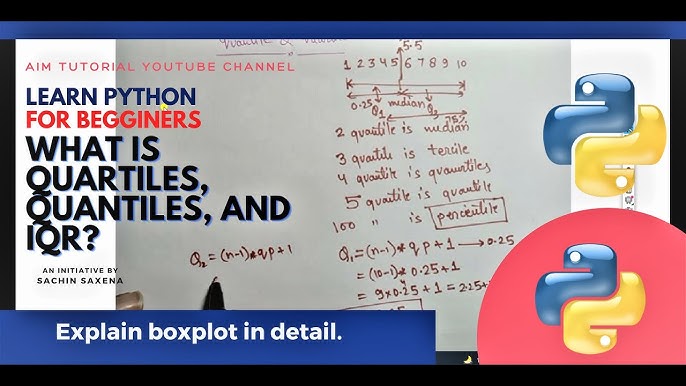 AIM TUTORIAL YOUTUBE CHANNEL
LEARN PYTHON
FOR BEGGINERS
WHAT IS
QUARTILES,
QUANTILES, AND
IQR?
AN INITIATIVE BY
SACHIN SAXENA
5.5
1 2 3 4 5 6 7 8 9 10
0.25 median
Q₁ Q₃ 75%
2 quartile is median
3 quartile is tercile
4 quartile is
5 quartile is quantile
100 " is percentile
Q₂ = (n-1)*qp+1
Q₁ = (n-1)* qp+1 → 0.25
= (10-1)* 0.25+1
= 9*0.25+1 = 2.25+
Explain boxplot in detail.